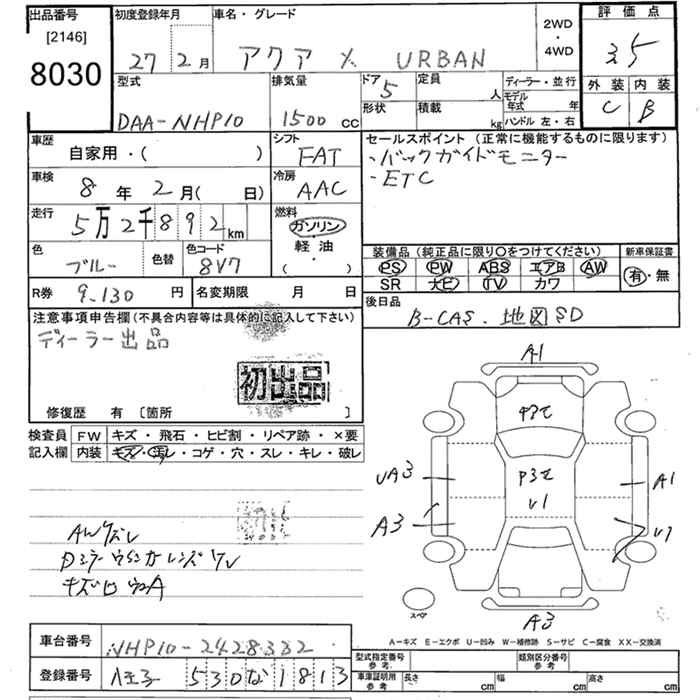 出品番号 [2146] 8030
初度登録年月 27 2月
車名・グレード アクア X URBAN
2WD・4WD
評価点 3.5
外装 C 内装 B
型式 DAA-NHP10
排気量 1500 cc
ドア 5 定員 人
形状 積載 kg
ディーラー・並行
モデル年式 年
ハンドル 左・右
車歴 自家用・( )
シフト FAT
車検 8年2月( 日)
冷房 AAC
走行 5万2千892km
燃料 ガソリン・軽油・( )
色 ブルー 色替 色コード 8V7
セールスポイント (正常に機能するものに限ります)
・バックガイドモニター
・ETC
装備品 (純正品に限り○をつけてください)
PS PW ABS エアB AW
SR ナビ TV カワ
新車保証書 有・無
R券 9,130円 名変期限 月 日
後日品 B-CAS. 地図SD
注意事項申告欄 (不具合内容等は具体的に記入して下さい)
ディーラー出品
初出品
修復歴 有 〔箇所 〕
検査員記入欄
FW キズ・飛石・ヒビ割・リペア跡・×要
内装 キズ・汚レ・コゲ・穴・スレ・キレ・破レ
AWキズ
A1
UA3
A3
A1
U1
A3
スペア
A-キズ E-エクボ U-凹み W-補修跡 S-サビ C-腐食 XX-交換済
車台番号 NHP10-2428332
登録番号 八王子 530な1813
型式指定番号 参考
類別区分番号 参考
車庫証明用 参考 長さ cm 幅 cm 高さ cm